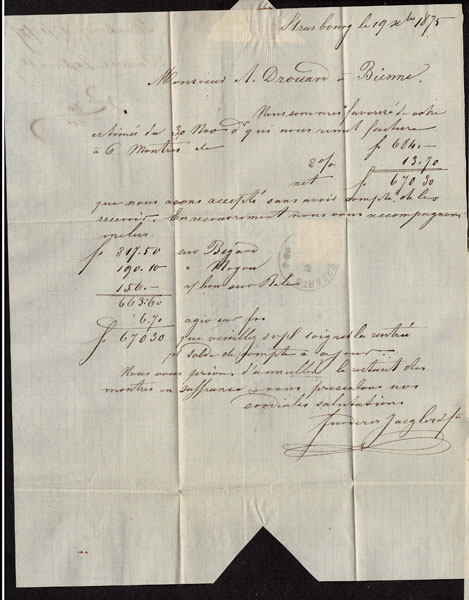 Strasbourg le 19 Xbre 1875
Monsieur A. Drouard à Bienne.
Nous sommes favorisé de votre
estimée du 30 Nov dr qui nous remet facture
à 6 Montres de f 684.-
2% 13.70
net f 670 30
que nous avons accepté sans avoir compté de les
recevoir. En recouvrement nous vous accompagnons
inclus.
f 317.50 sur Bégard
190.10 " Moyon
156.- s/ bon sur Bale
663.60
6.70 agio sur
f 670 30 que veuillez svpl soigner la rentrée
p solde de compte à ce jour
Nous vous prions d'annuller le restant des
montres en suffrance & vous presentons nos
cordiales salutations